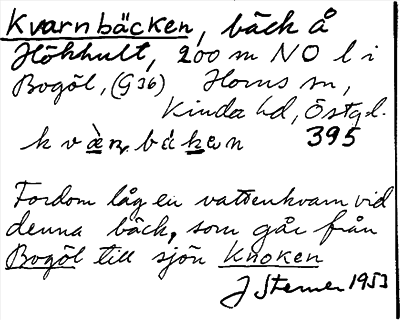 Kvarnbäcken, bäck å
Hökhult, 200 m NO l i
Bogöl, (G36) Horns sn,
Kinda hd, Östgl.
kvà̱ṇbäke̱n 395
Fordom låg en vattenkvarn vid
denna bäck, som går från
Bogöl till sjön Knoken
J Sterner 1953